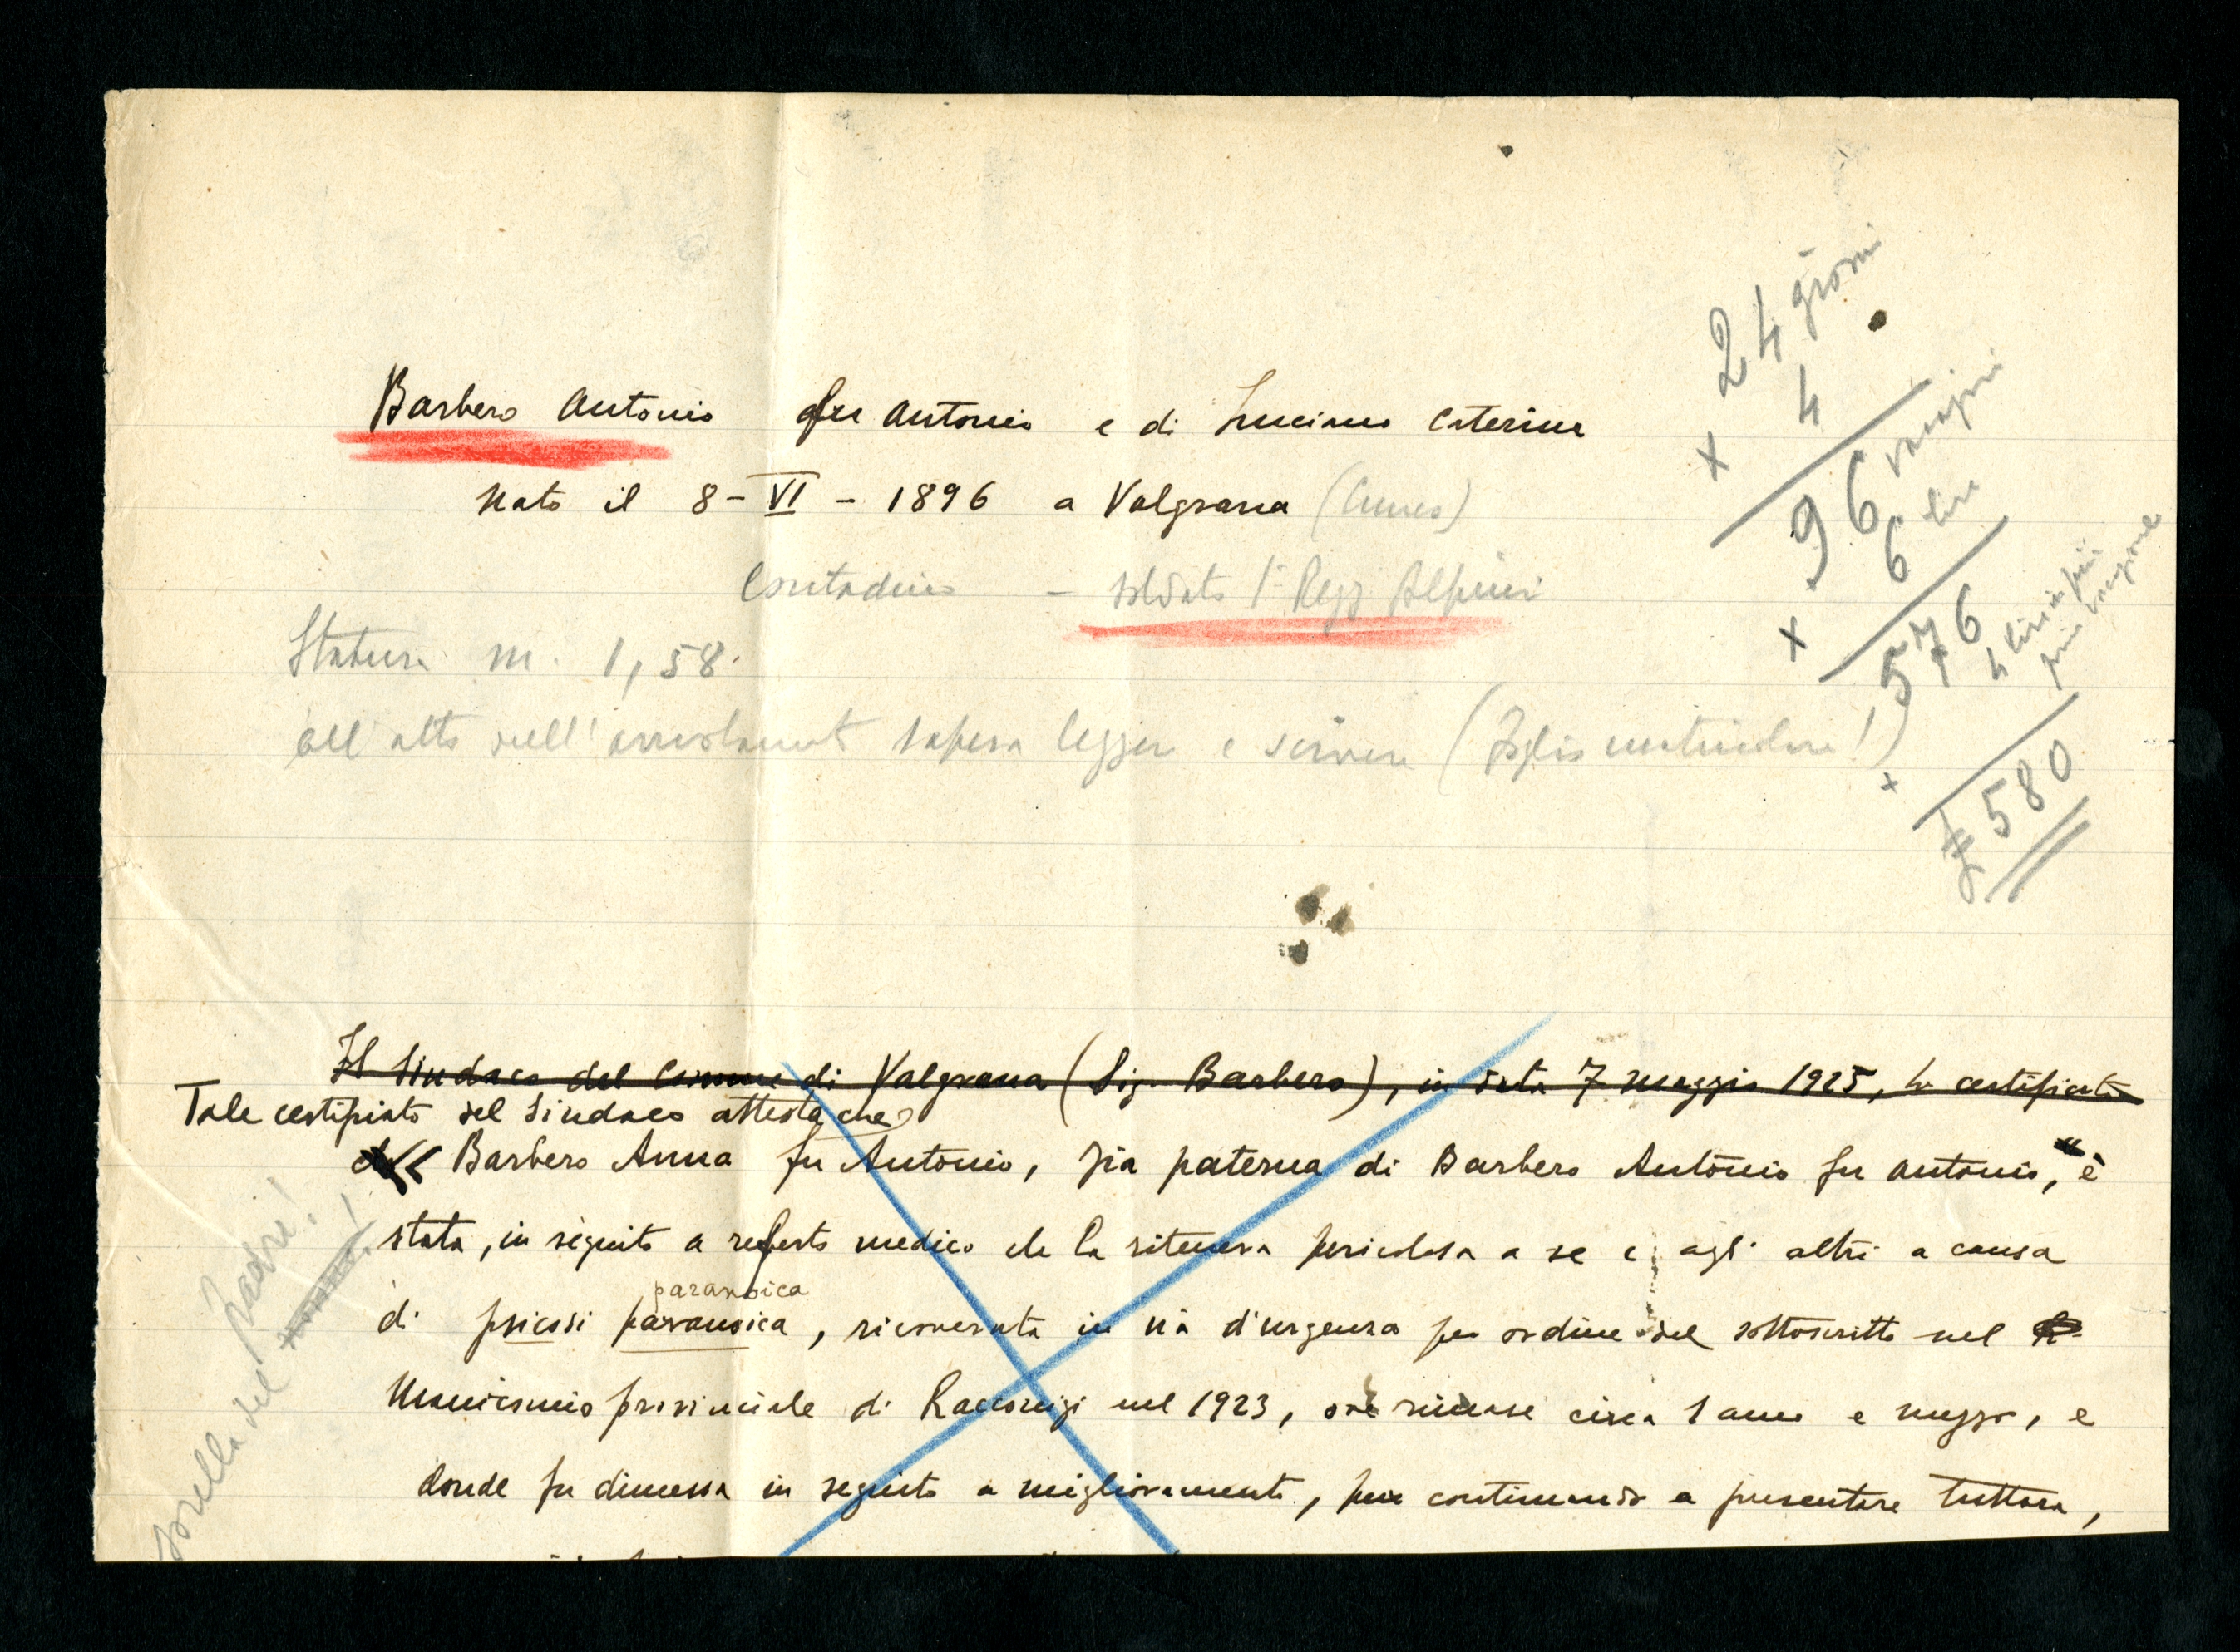 Barbero Antonio fu Antonio e di Luciano Caterina
Nato il 8 - VI - 1896 a Valgrana (Cuneo)
Contadino - soldato 1° Regg Alpini
Statura m. 1,58.
all'atto dell'arruolamento sapeva leggere e scrivere (Foglio matricolare!)
24 giorni
x 4
96 vacazioni
x 6 lire
576
4 lire in più
prima vacazione
x
£ 580
Il Sindaco del Comune di Valgrana (Sig. Barbero), in data 7 maggio 1925, ha certificato
Tale certificato del Sindaco attesta che
<< Barbero Anna fu Antonio, zia paterna di Barbero Antonio fu Antonio, " è
stata, in seguito a referto medico che la riteneva pericolosa a se e agli altri a causa
paranoica
di psicosi paranoica, ricoverata in via d'urgenza per ordine del sottoscritto nel
Manicomio provinciale di Racconigi nel 1923, ove rimase circa 1 anno e mezzo, e
donde fu dimessa in seguito a miglioramento, pur continuando a presentare tuttora,
sorella del padre!